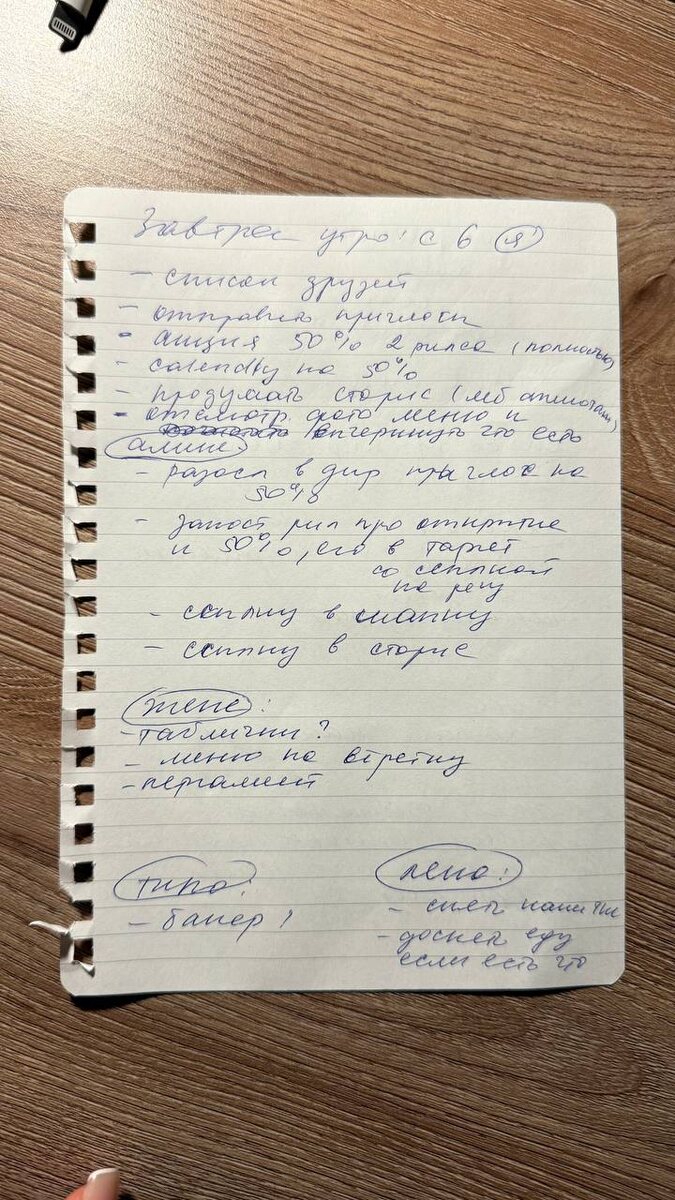 Завтра утро! с 6 (я)
- список друзей
- отправить приглоси
- акция 50% 2 рилса (полностью)
- calendly на 50%
- продумать сторис (мб
- отсмотр. фото меню и
вычеркнуть что есть
Алине
- разосл в дир приглос на
50%
- запост рил про открытие
и 50%, его в таргет
со ссылкой
на регу
- ссылку в шапку
- ссылку в сторис
Жене:
- таблички?
- меню на встречу
- пергамент
Типо:
- банер!
Лена:
- снять напитки
- доснять еду
если есть что